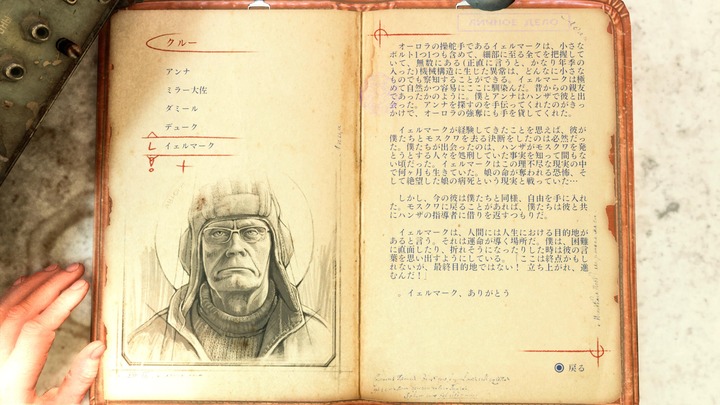 クルー
アンナ
ミラー大佐
ダミール
デューク
イェルマーク
ЛИЧНОЕ ДЕЛО
オーロラの操舵手であるイェルマークは、小さな
ボルト1つ1つも含めて、細部に至る全てを把握して
いて、無数にある(正直に言うと、かなり年季の
入った)機械構造に生じた異常は、どんなに小さな
ものでも察知することができる。イェルマークは極
めて自然かつ容易にここに馴染んだ。昔からの親友
であったかのように。僕とアンナはハンザで彼と出
会った。アンナを探すのを手伝ってくれたのがきっ
かけで、オーロラの強奪にも手を貸してくれた。
イェルマークが経験してきたことを思えば、彼が
僕たちとモスクワを去る決断をしたのは必然だっ
た。僕たちが出会ったのは、ハンザがモスクワを発
とうとする人々を処刑していた事実を知って間もな
い頃だった。イェルマークはこの理不尽な現実の中
で何ヶ月も生きていた。娘の命が奪われる恐怖、そ
して絶望した娘の病死という現実と戦っていた…
しかし、今の彼は僕たちと同様、自由を手に入れ
た。モスクワに戻ることがあれば、僕たちは彼と共
にハンザの指導者に借りを返すつもりだ。
イェルマークは、人間には人生における目的地が
あると言う。それは運命が導く場所だ。僕は、困難
に直面したり、折れそうになったりした時は彼の言
葉を思い出すようにしている。「ここは終点かもし
れないが、最終目的地ではない！ 立ち上がれ、進
むんだ！」
イェルマーク、ありがとう
戻る